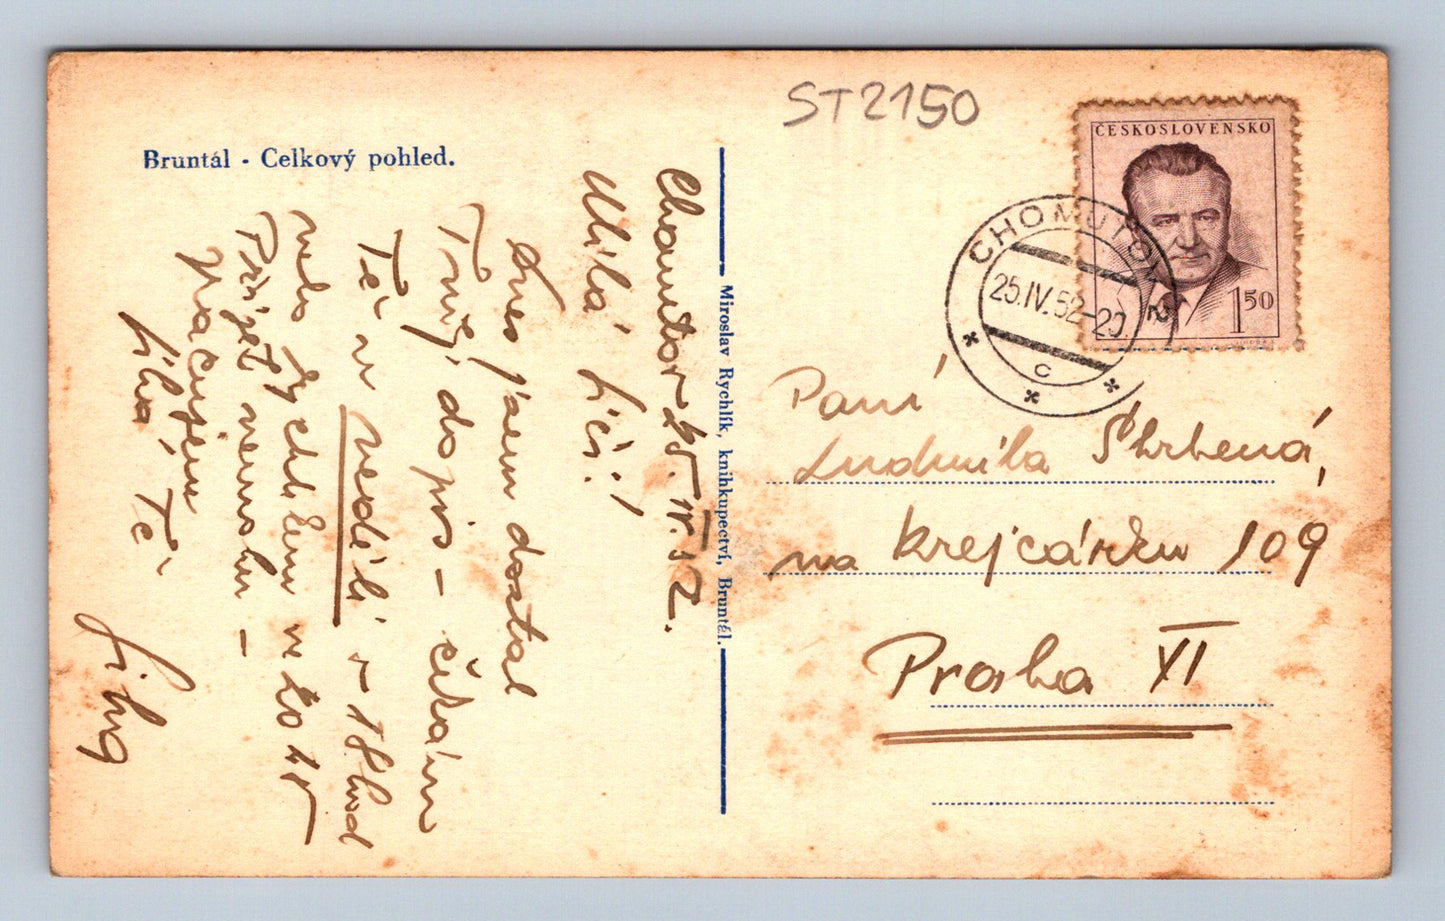 ST2150
Bruntál - Celkový pohled.
ČESKOSLOVENSKO
150
CHOMUTOV 2
25.IV.52-20
C
Miroslav Rychlík, knihkupectví, Bruntál.
Chomutov 25.IV.52.
Milá
Dnes jsem dostal
Tvůj dopis – čekám
Tě v neděli v 18 hod
nebo v 20 45
Přijet nemohu –
Tě
Paní
Ludmila Skrbená,
na Krejcárku 109
Praha XI